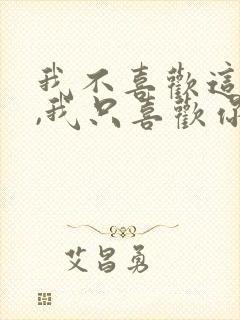 我不喜歡這
,我只喜歡你
艾昌勇